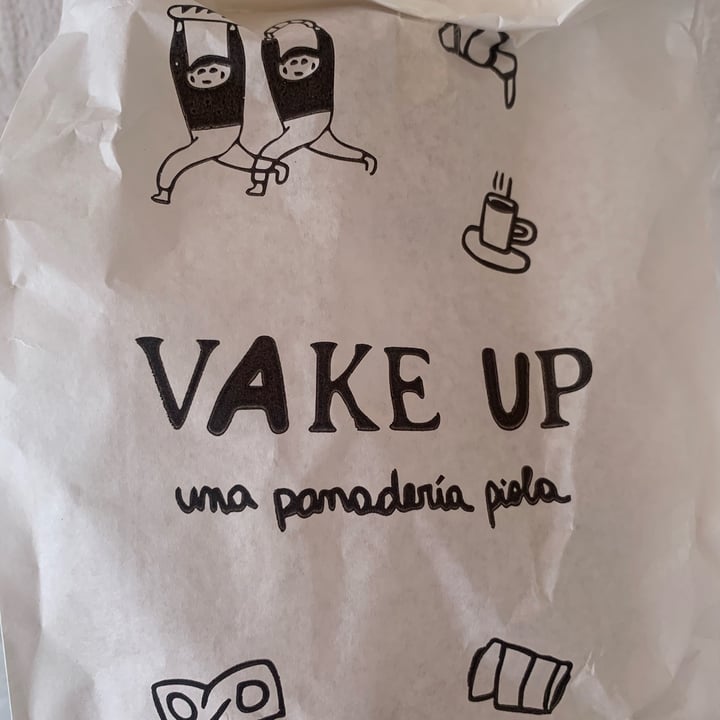 VAKE UP
una panadería piola